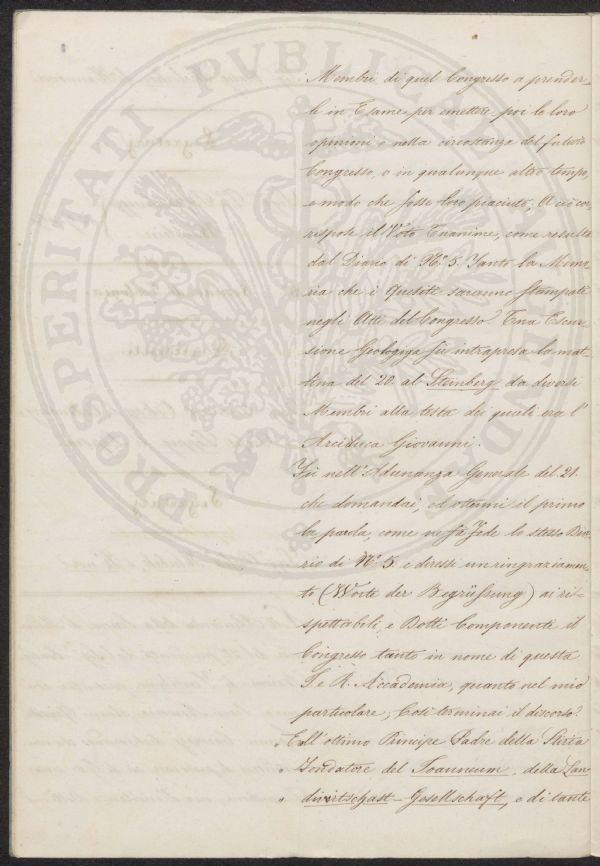 Membri di quel Congresso a prender-
le in Esame per emettere poi le loro
opinioni o nella circostanza del futuro
Congresso, o in qualunque altro tempo,
e modo che fosse loro piaciuto; A ciò cor-
rispose il Voto Unanime, come resulta
dal Diario di N.º 5. Tanto la Memo-
ria che i Quesiti saranno Stampati
negli Atti del Congresso. Una Escur-
sione Geologica fù intrapresa la mat-
tina del 20. al Steinberg da diversi
Membri alla testa dei quali era l'
Arciduca Giovanni.
Fù nell'Adunanza Generale del 21.
che domandai, ed ottenni il primo
la parola, come ne fà fede lo stesso Dia-
rio di N.º 5 e diressi un ringraziamen-
to (Worte der Begrüßung) ai ri-
spettabili, e Dotti Componenti il
Congresso tanto in nome di questa
I. e R. Accademia, quanto nel mio
particolare; Così terminai il discorso.
"E all'ottimo Principe Padre della Stiria
"Fondatore del Joanneum, della Lan
"dwirtschaft-Gesellschaft, e di tante
PROSPERITATI PVBLICAE